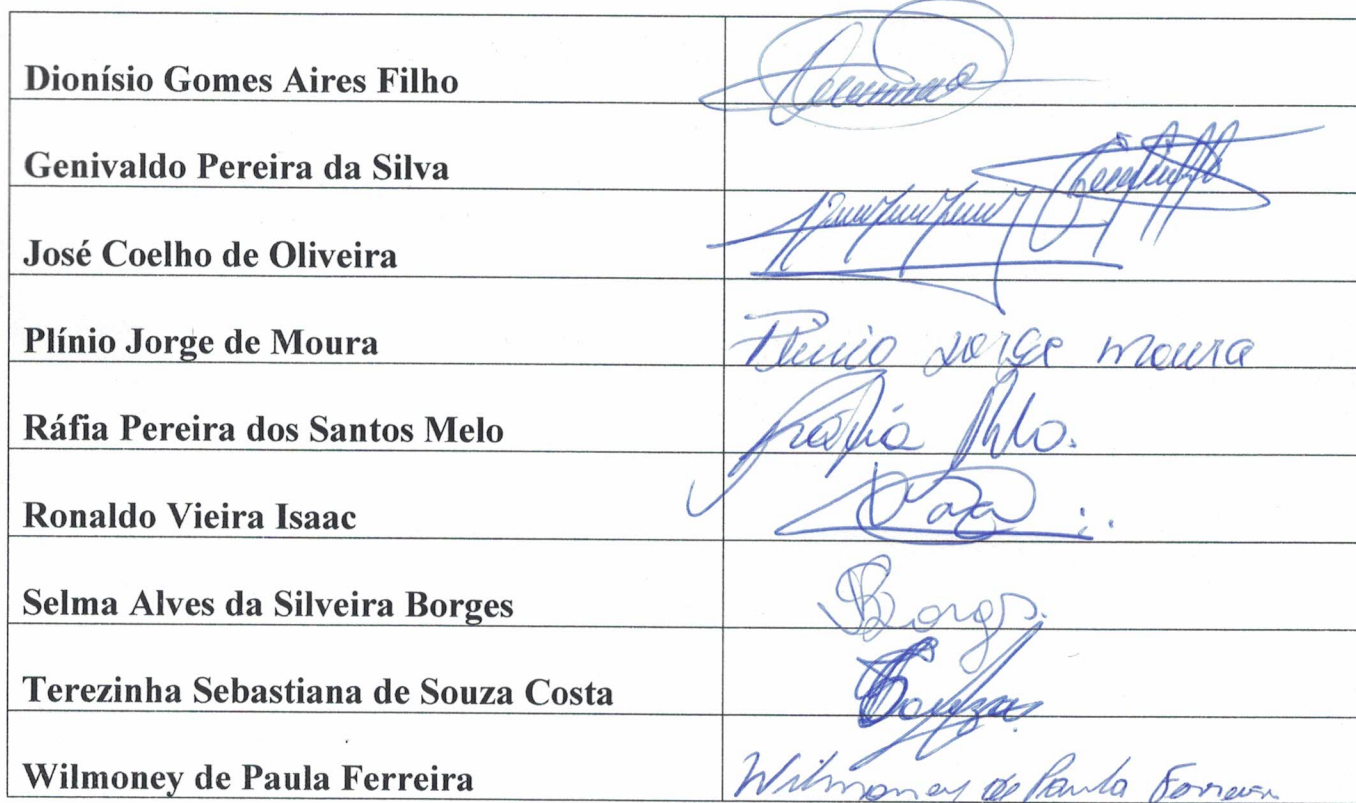 Dionísio Gomes Aires Filho
Genivaldo Pereira da Silva
José Coelho de Oliveira
Plínio Jorge de Moura Plinio Jorge Moura
Ráfia Pereira dos Santos Melo Ráfia Melo.
Ronaldo Vieira Isaac
Selma Alves da Silveira Borges SBorges.
Terezinha Sebastiana de Souza Costa
Wilmoney de Paula Ferreira Wilmoney de Paula Ferreira